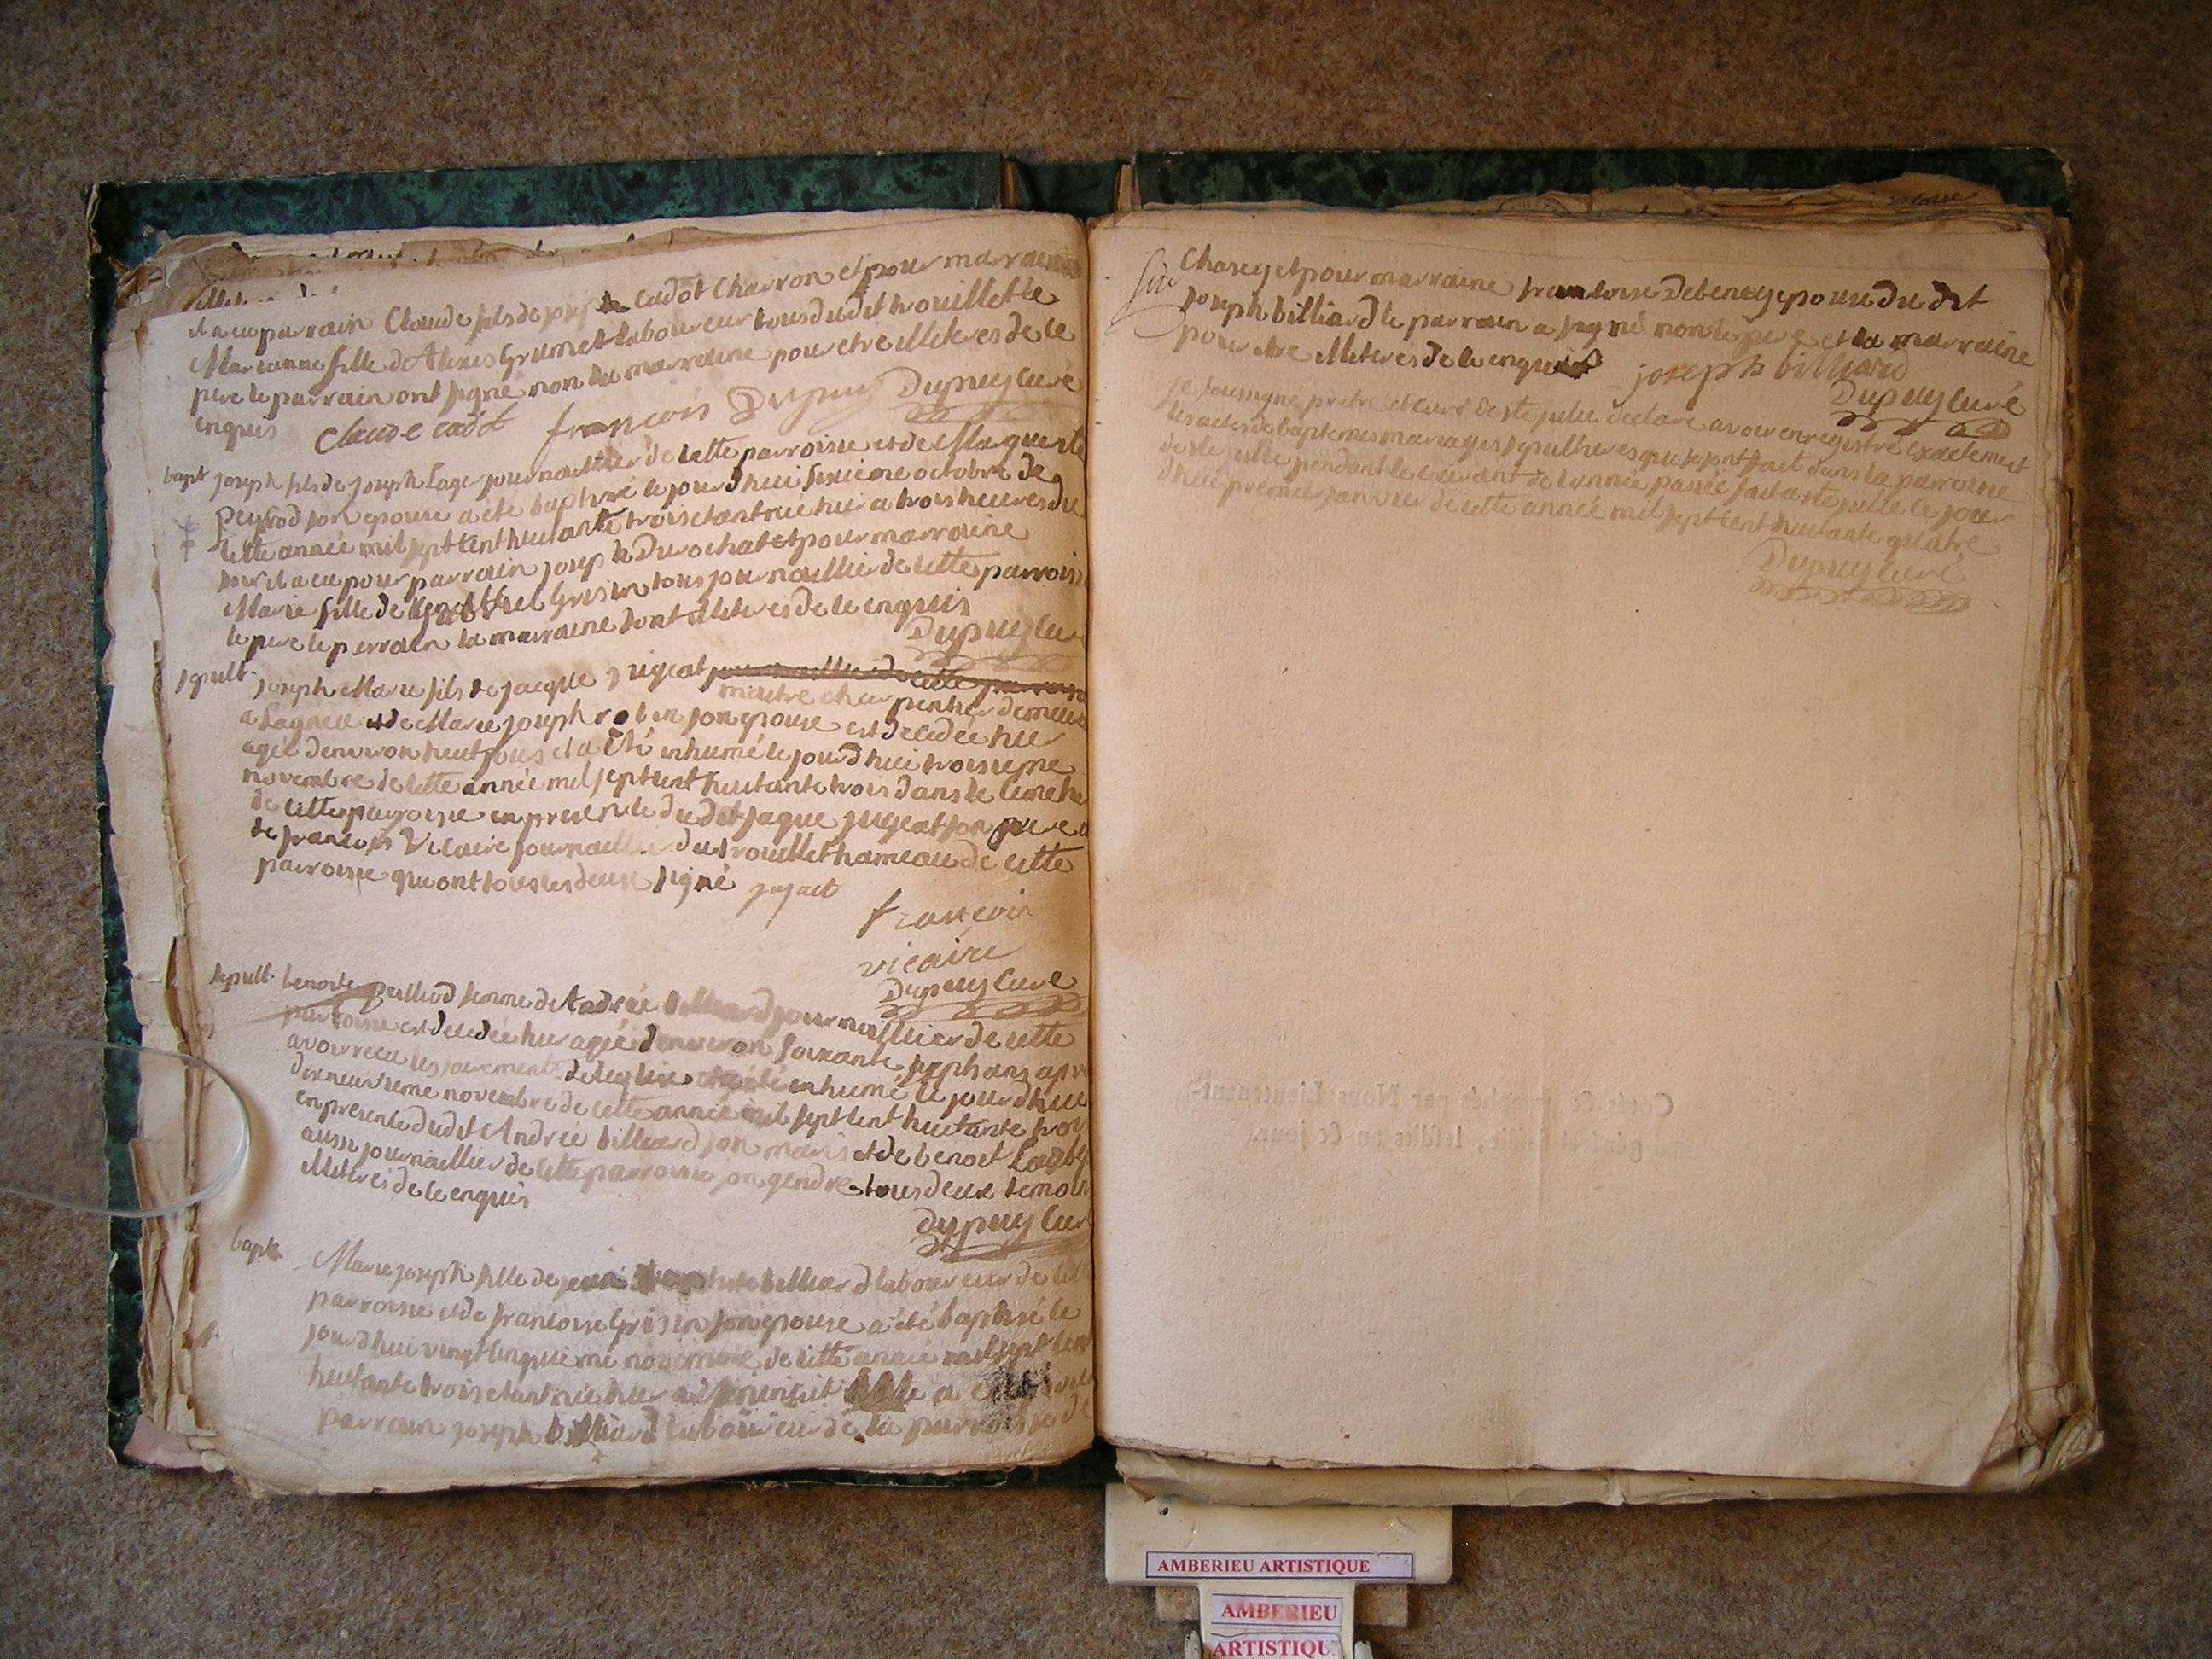 il a eu parrain Claude fils de joseph Cadot Charron et pour marraine
Marianne fille d'Alexis Grumet laboureur tous dudit trouillet le
pere le parrain ont signé non la marraine pour etre illiteres de ce
enquis Claude cadot françois Dupuy Dupuy curé
bapt joseph fils de joseph Lage journaillier de cette parroisse et de Marguerite
peyrod son epouse a été baptisé le jourd'hui sixieme octobre de
cette année mil sept cent huitante trois etant né hier a trois heures du
soir il a eu pour parrain joseph Durochat et pour marraine
Marie fille de Grisin tous journaillier de cette parroisse
le pere le parrain la marraine sont illiteres de ce enquis
Dupuy cu
sepult. joseph Marie fils de jacque jugeat journaillier de cette parroisse
maitre charpentier demeu
a Lagnieu et de Marie joseph robin son epouse est decedée hier
agée denviron huit jours et a été inhumé le jourd'hui troisieme
novembre de cette année mil sept cent huitante trois dans le cimetie
de cette parroisse en presence dudit jaque jugeat son pere e
de francois Vicaire journaillier du trouillet hameau de cette
parroisse qui ont tous les deux signé jujeat
françois
vicaire
Dupuy curé
sepult. benoite peilliod femme de Andrée billiard journaillier de cette
parroisse est decedée hier agée denviron soixante sept ans apre
avoir recu les sacrements de leglise et a été inhumé le jourd'hui
dixneuvieme novembre de cette année mil sept cent huitante troi
en presence dudit Andrée billiard son maris et de benoit
aussi journaillier de cette parroisse son gendre tous deux temoin
illiterés de ce enquis
Dupuy cur
bapt
Marie joseph fille de billiard laboureur de cette
parroisse et de francoise Grisin son epouse a été baptisé le
jourd'hui vingt cinquieme novembre de cette année mil sept cent
huitante trois etant née hier a
parrain joseph billiard laboureur de la parroisse de
Charey et pour marraine francoise Debeney epouse du dit
joseph billiard le parrain a signé non le pere et la marraine
pour etre illiteres de ce enquis joseph billiard
Dupuy curé
je soussigné pretre et curé de ste julie declare avoir enregistré exactement
les actes de baptemes mariages sepultures qui se sont fait dans la parroisse
de ste julie pendant le courant de l'année passée fait a ste julie le jour
d'hui premier janvier de cette année mil sept cent huitante quatre
Dupuy curé
AMBERIEU ARTISTIQUE
AMBERIEU
ARTISTIQU